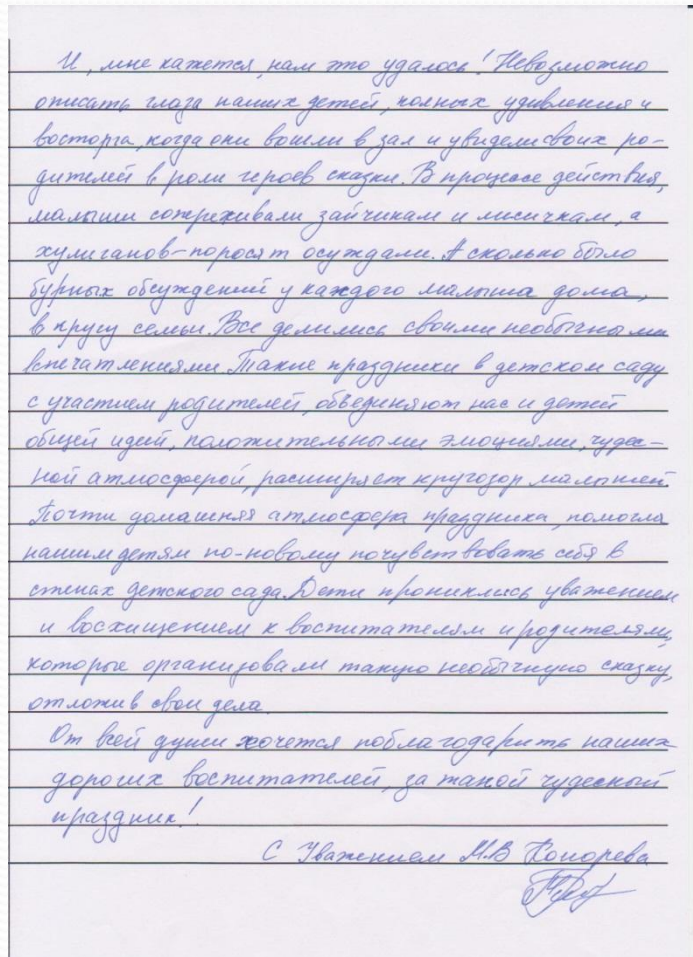 И, мне кажется, нам это удалось! Невозможно
описать глаза наших детей, полных удивления и
восторга, когда они вошли в зал и увидели своих ро-
дителей в роли героев сказки. В процессе действия,
малыши сопереживали зайчикам и лисичкам, а
хулиганов-поросят осуждали. А сколько было
бурных обсуждений у каждого малыша дома,
в кругу семьи. Все делились своими необычными
впечатлениями. Такие праздники в детском саду
с участием родителей, объединяют нас и детей
общей идей, положительными эмоциями, чудес-
ной атмосферой, расширяет кругозор малышей.
Почти домашняя атмосфера праздника, помогла
нашим детям по-новому почувствовать себя в
стенах детского сада. Дети прониклись уважением
и восхищением к воспитателям и родителям,
которые организовали такую необычную сказку,
отложив свои дела.
От всей души хочется поблагодарить наших
дорогих воспитателей, за такой чудесный
праздник!
С Уважением М.В